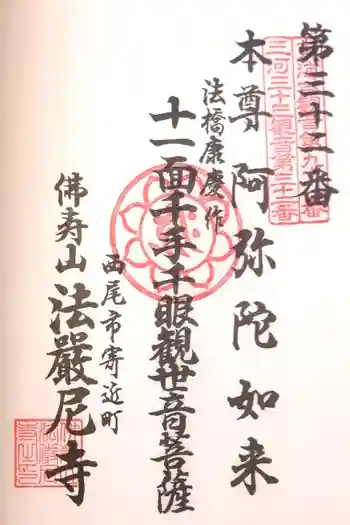 第三十二番
三河三十三観音第三十二番
本尊 阿弥陀如来
法橋康慶作
十一面千手千眼觀世音菩薩
西尾市寄近町
佛寿山 法嚴尼寺